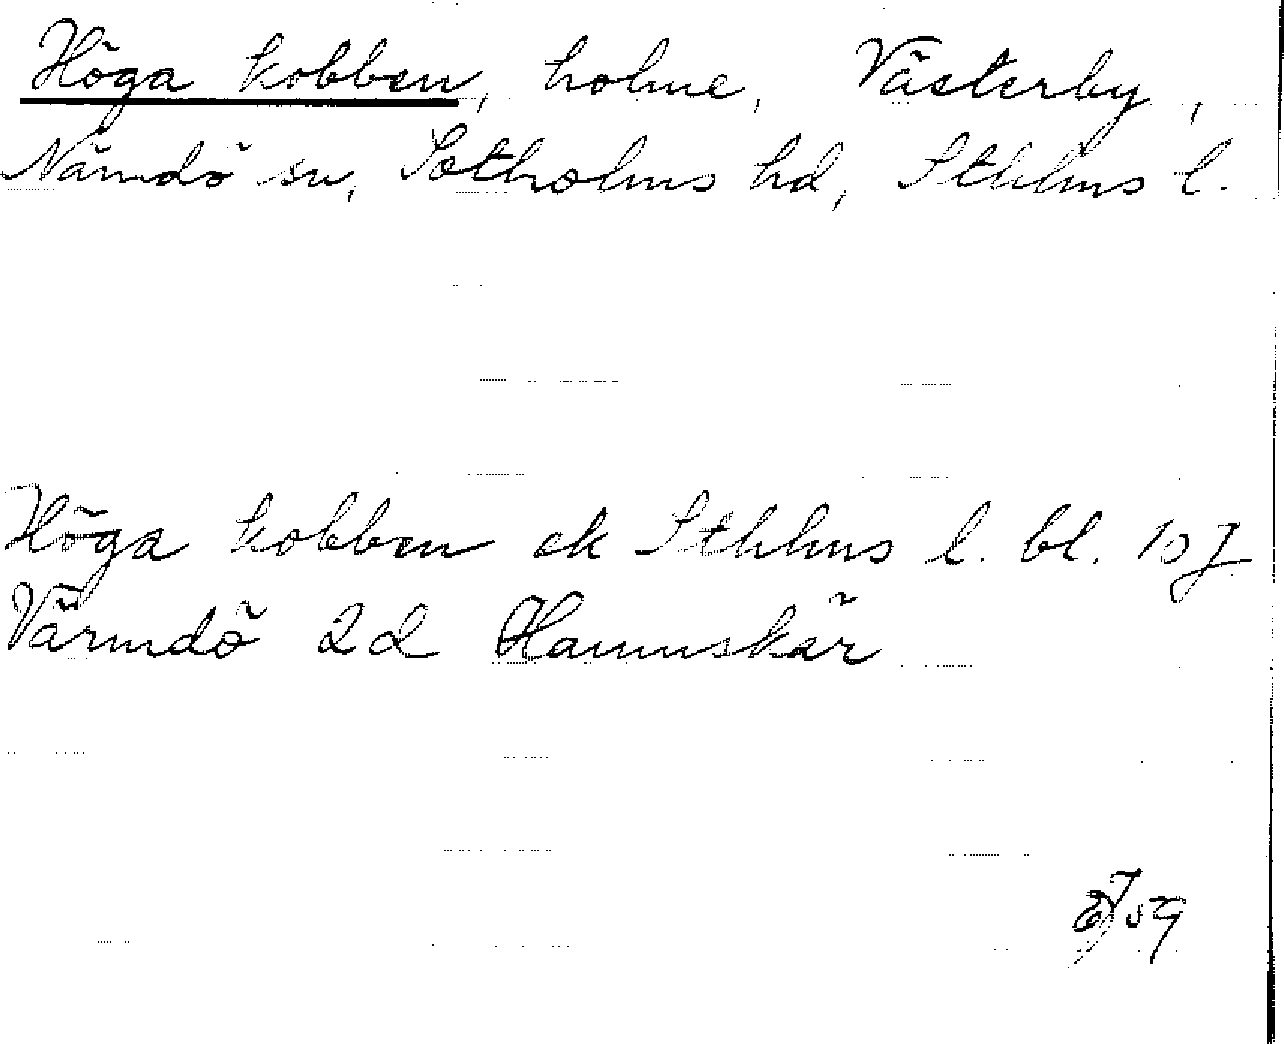 Höga kobben, holme, Västerby,
Nämdö sn, Sotholms hd, Sthlms l.
Höga kobben ek Sthlms l. bl. 107
Värmdö 2d Hamnskär